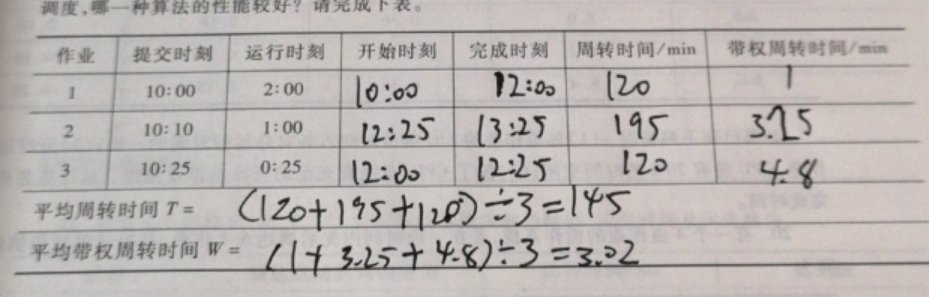 调度,哪一种算法的性能较好?请完成下表。
作业 提交时刻 运行时刻 开始时刻 完成时刻 周转时间/min 带权周转时间/min
1 10:00 2:00 10:00 12:00 120 1
2 10:10 1:00 12:25 13:25 195 3.25
3 10:25 0:25 12:00 12:25 120 4.8
平均周转时间 T= (120+195+120)÷3=145
平均带权周转时间 W= (1+3.25+4.8)÷3=3.02